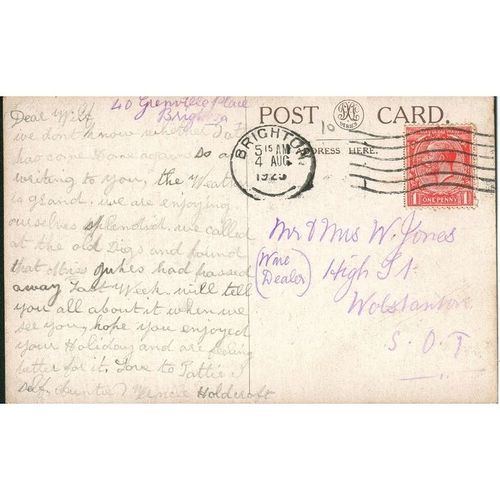 40 Grenville Place
Brighton
Dear Wilf,
we don't know whether Tat
has come Home again so am
writing to you, the Weather
is grand, we are enjoying
ourselves splendid, we called
at the old Digs and found
that Mrs Jukes had passed
away Last Week will tell
you all about it when we
see you, hope you enjoyed
your Holidays and are feeling
better for it. Love to Pattie &
self. Auntie & Minnie Holdcroft
POST CARD.
ADDRESS HERE.
BRIGHTON
5 15 AM
4 AUG
1925
ONE PENNY
1 1
10
Mr & Mrs W. Jones
(Wine
Dealer)
High St.
Wolstanton
S. O. T